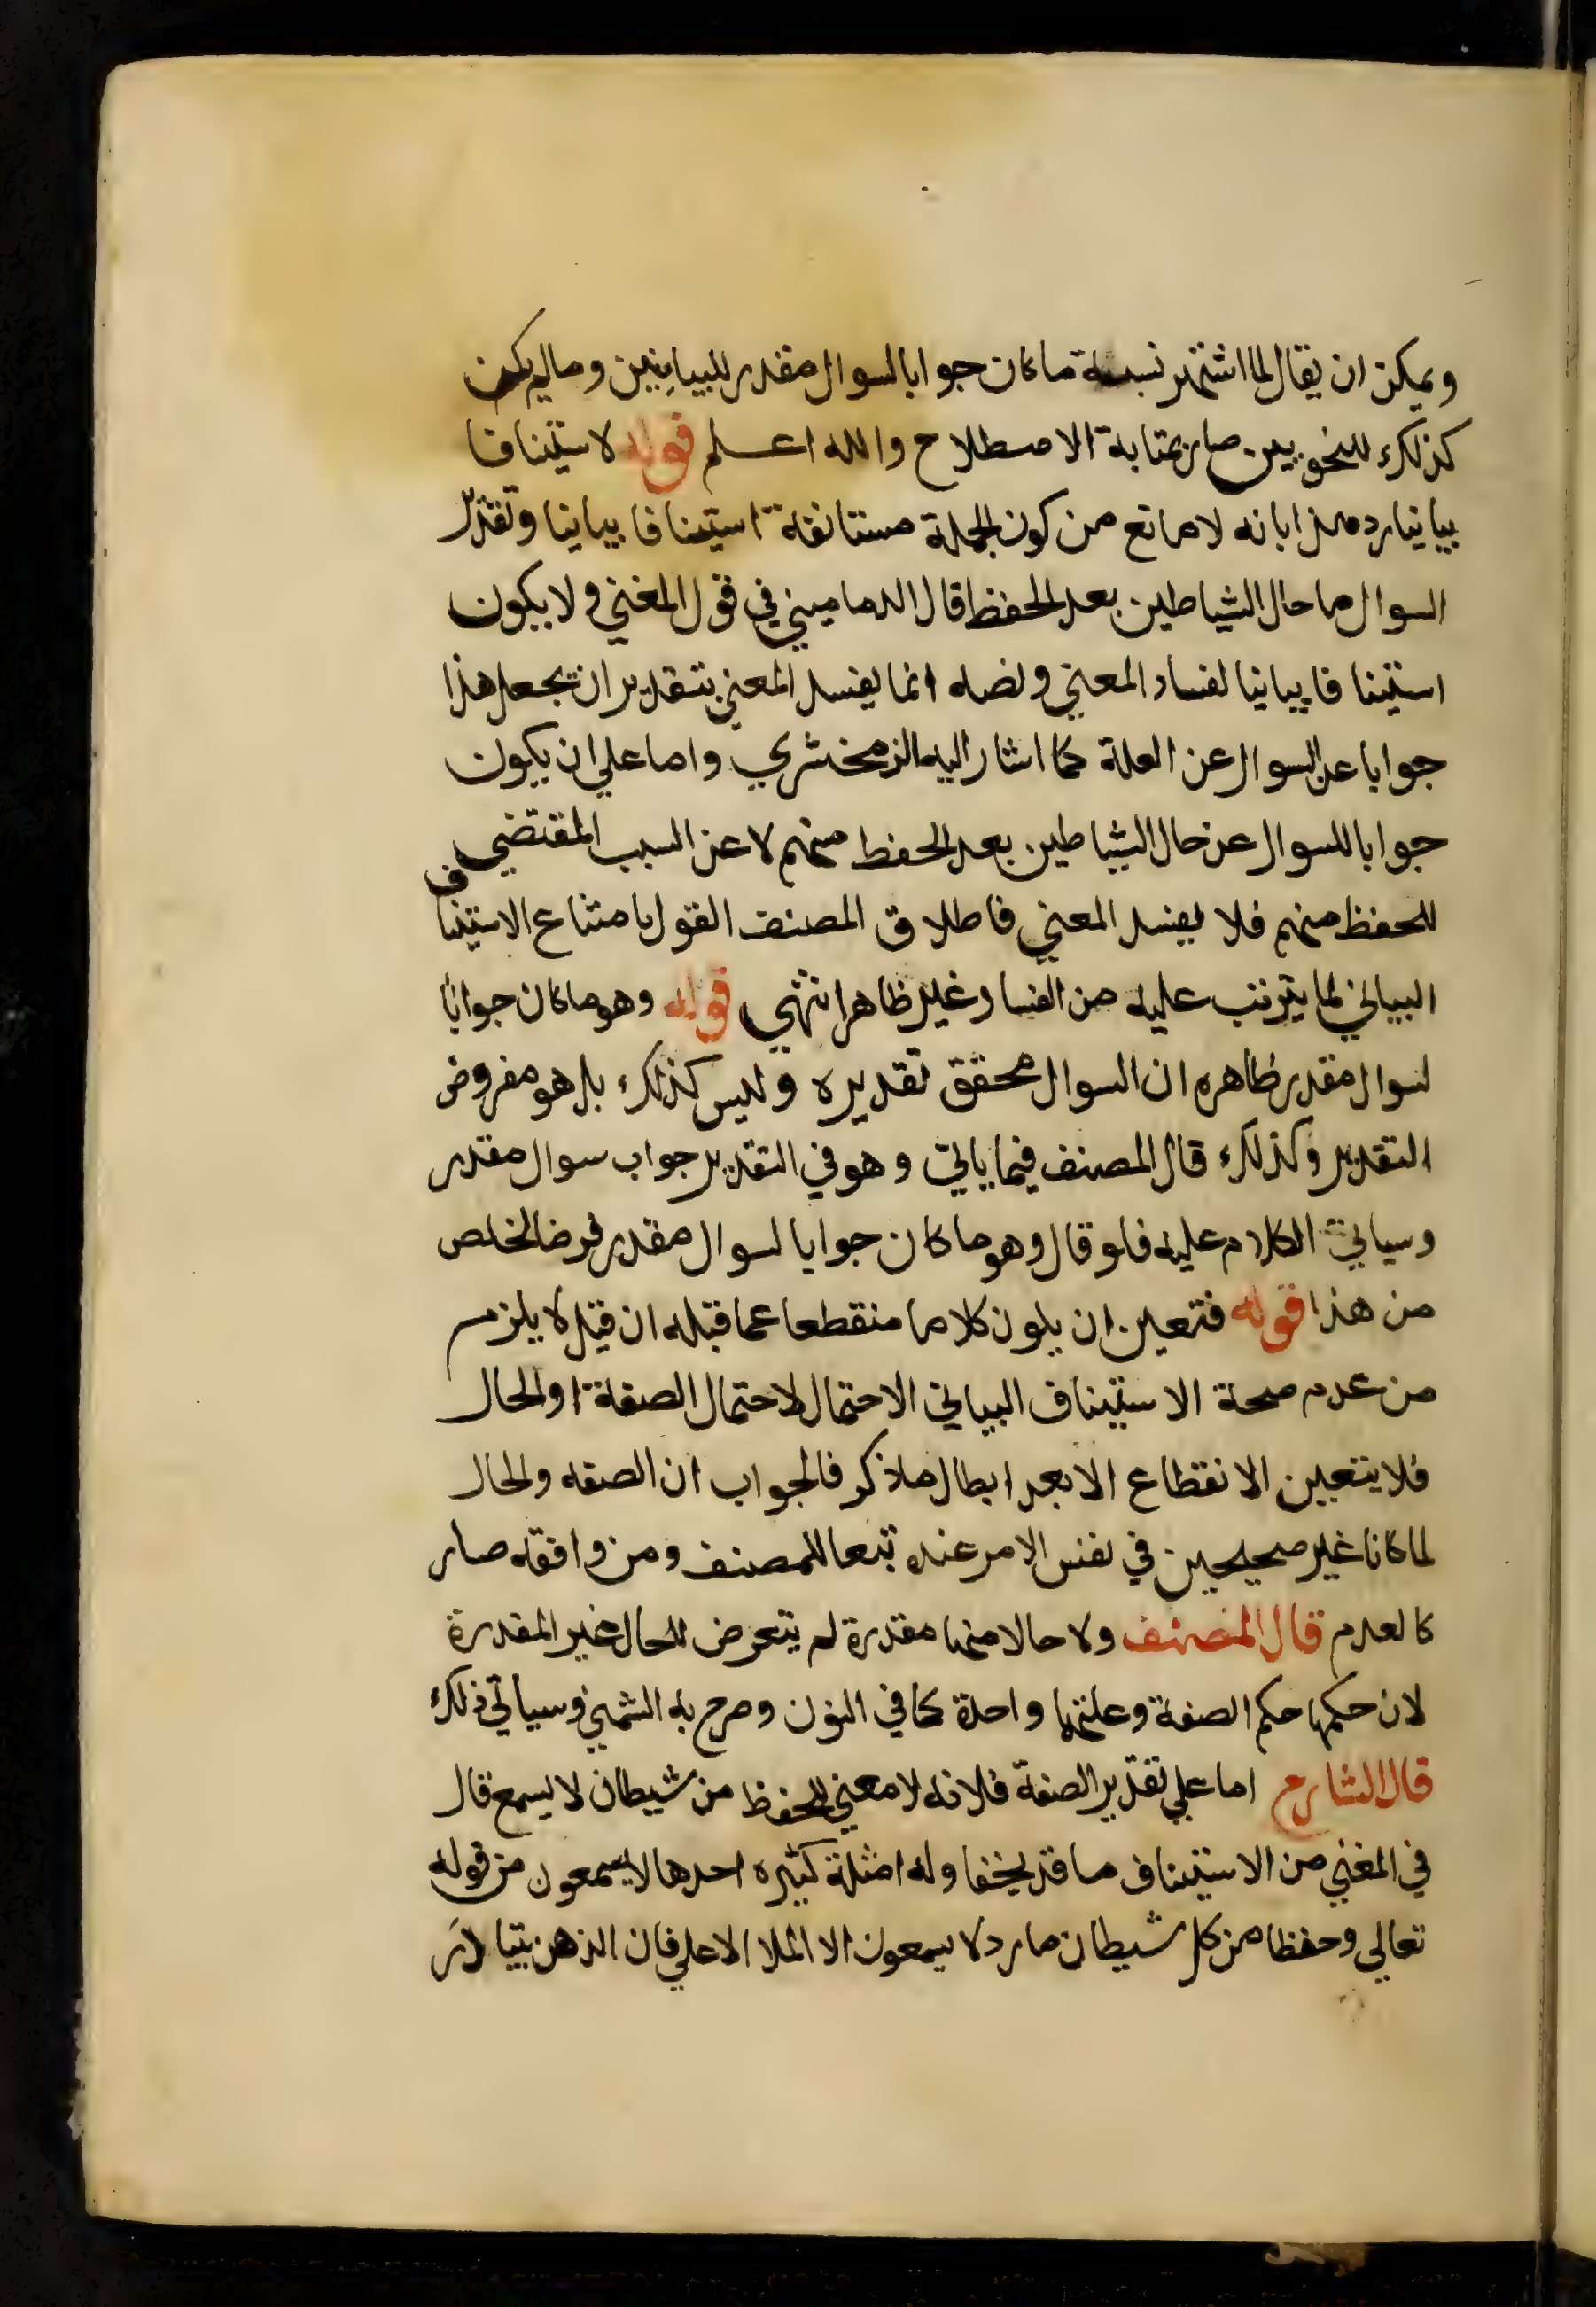 ويمكن ان يقال لما اشتهر نسبة ما كان جوابا لسوال مقدر للبيانيين وما لم يكن
كذلك للنحويين صار بمثابة الاصطلاح والله اعلم قوله لا ستينافا
بيانيا رد هذا بانه لا مانع من كون الجملة مستانفة استينافا بيانيا وتقدير
السوال ما حال الشياطين بعد الحفظ قال الدماميني في قول المغني ولا يكون
استينافا بيانيا لفساد المعني ونصه انما يفسد المعني بتقدير ان يجعل هذا
جوابا عن السوال عن العلة كما اشار اليه الزمخشري واما علي ان يكون
جوابا للسوال عن حال الشياطين بعد الحفظ منهم لا عن السبب المقتضي
للحفظ منهم فلا يفسد المعني فاطلاق المصنف القول بامتناع الاستيناف
البياني لما يترتب عليه من الفساد غير ظاهر انتهي قوله وهو ما كان جوابا
لسوال مقدر ظاهره ان السوال محقق تقديره وليس كذلك بل هو مفروض
التقدير وكذلك قال المصنف فيما ياتي وهو في التقدير جواب سوال مقدر
وسياتي الكلام عليه فلو قال وهو ما كان جوابا لسوال مقدر فرضا لخلص
من هذا قوله فتعين ان يكون كلاما منقطعا عما قبله ان قيل لا يلزم
من عدم صحة الاستيناف البياني الاحتمال لاحتمال الصفة او الحال
فلا يتعين الانقطاع الا بعد ابطال ما ذكر فالجواب ان الصفه والحال
لما كانا غير صحيحين في نفس الامر عنده تبعا للمصنف ومن وافقه صار
كالعدم قال المصنف ولا حالا منها مقدرة لم يتعرض للحال غير المقدرة
لان حكمها حكم الصفة وعلتهما واحدة كما في النون وصرح به الشمني وسياتي ذلك
قال الشارح اما علي تقدير الصفة فلانه لا معني للحفظ من شيطان لا يسمع قال
في المغني من الاستيناف ما قد يخفا وله امثلة كثيره احدها لا يسمعون من قوله
تعالي وحفظا من كل شيطان مارد لا يسمعون الا الملا الاعلي فان الذهن يتبادر